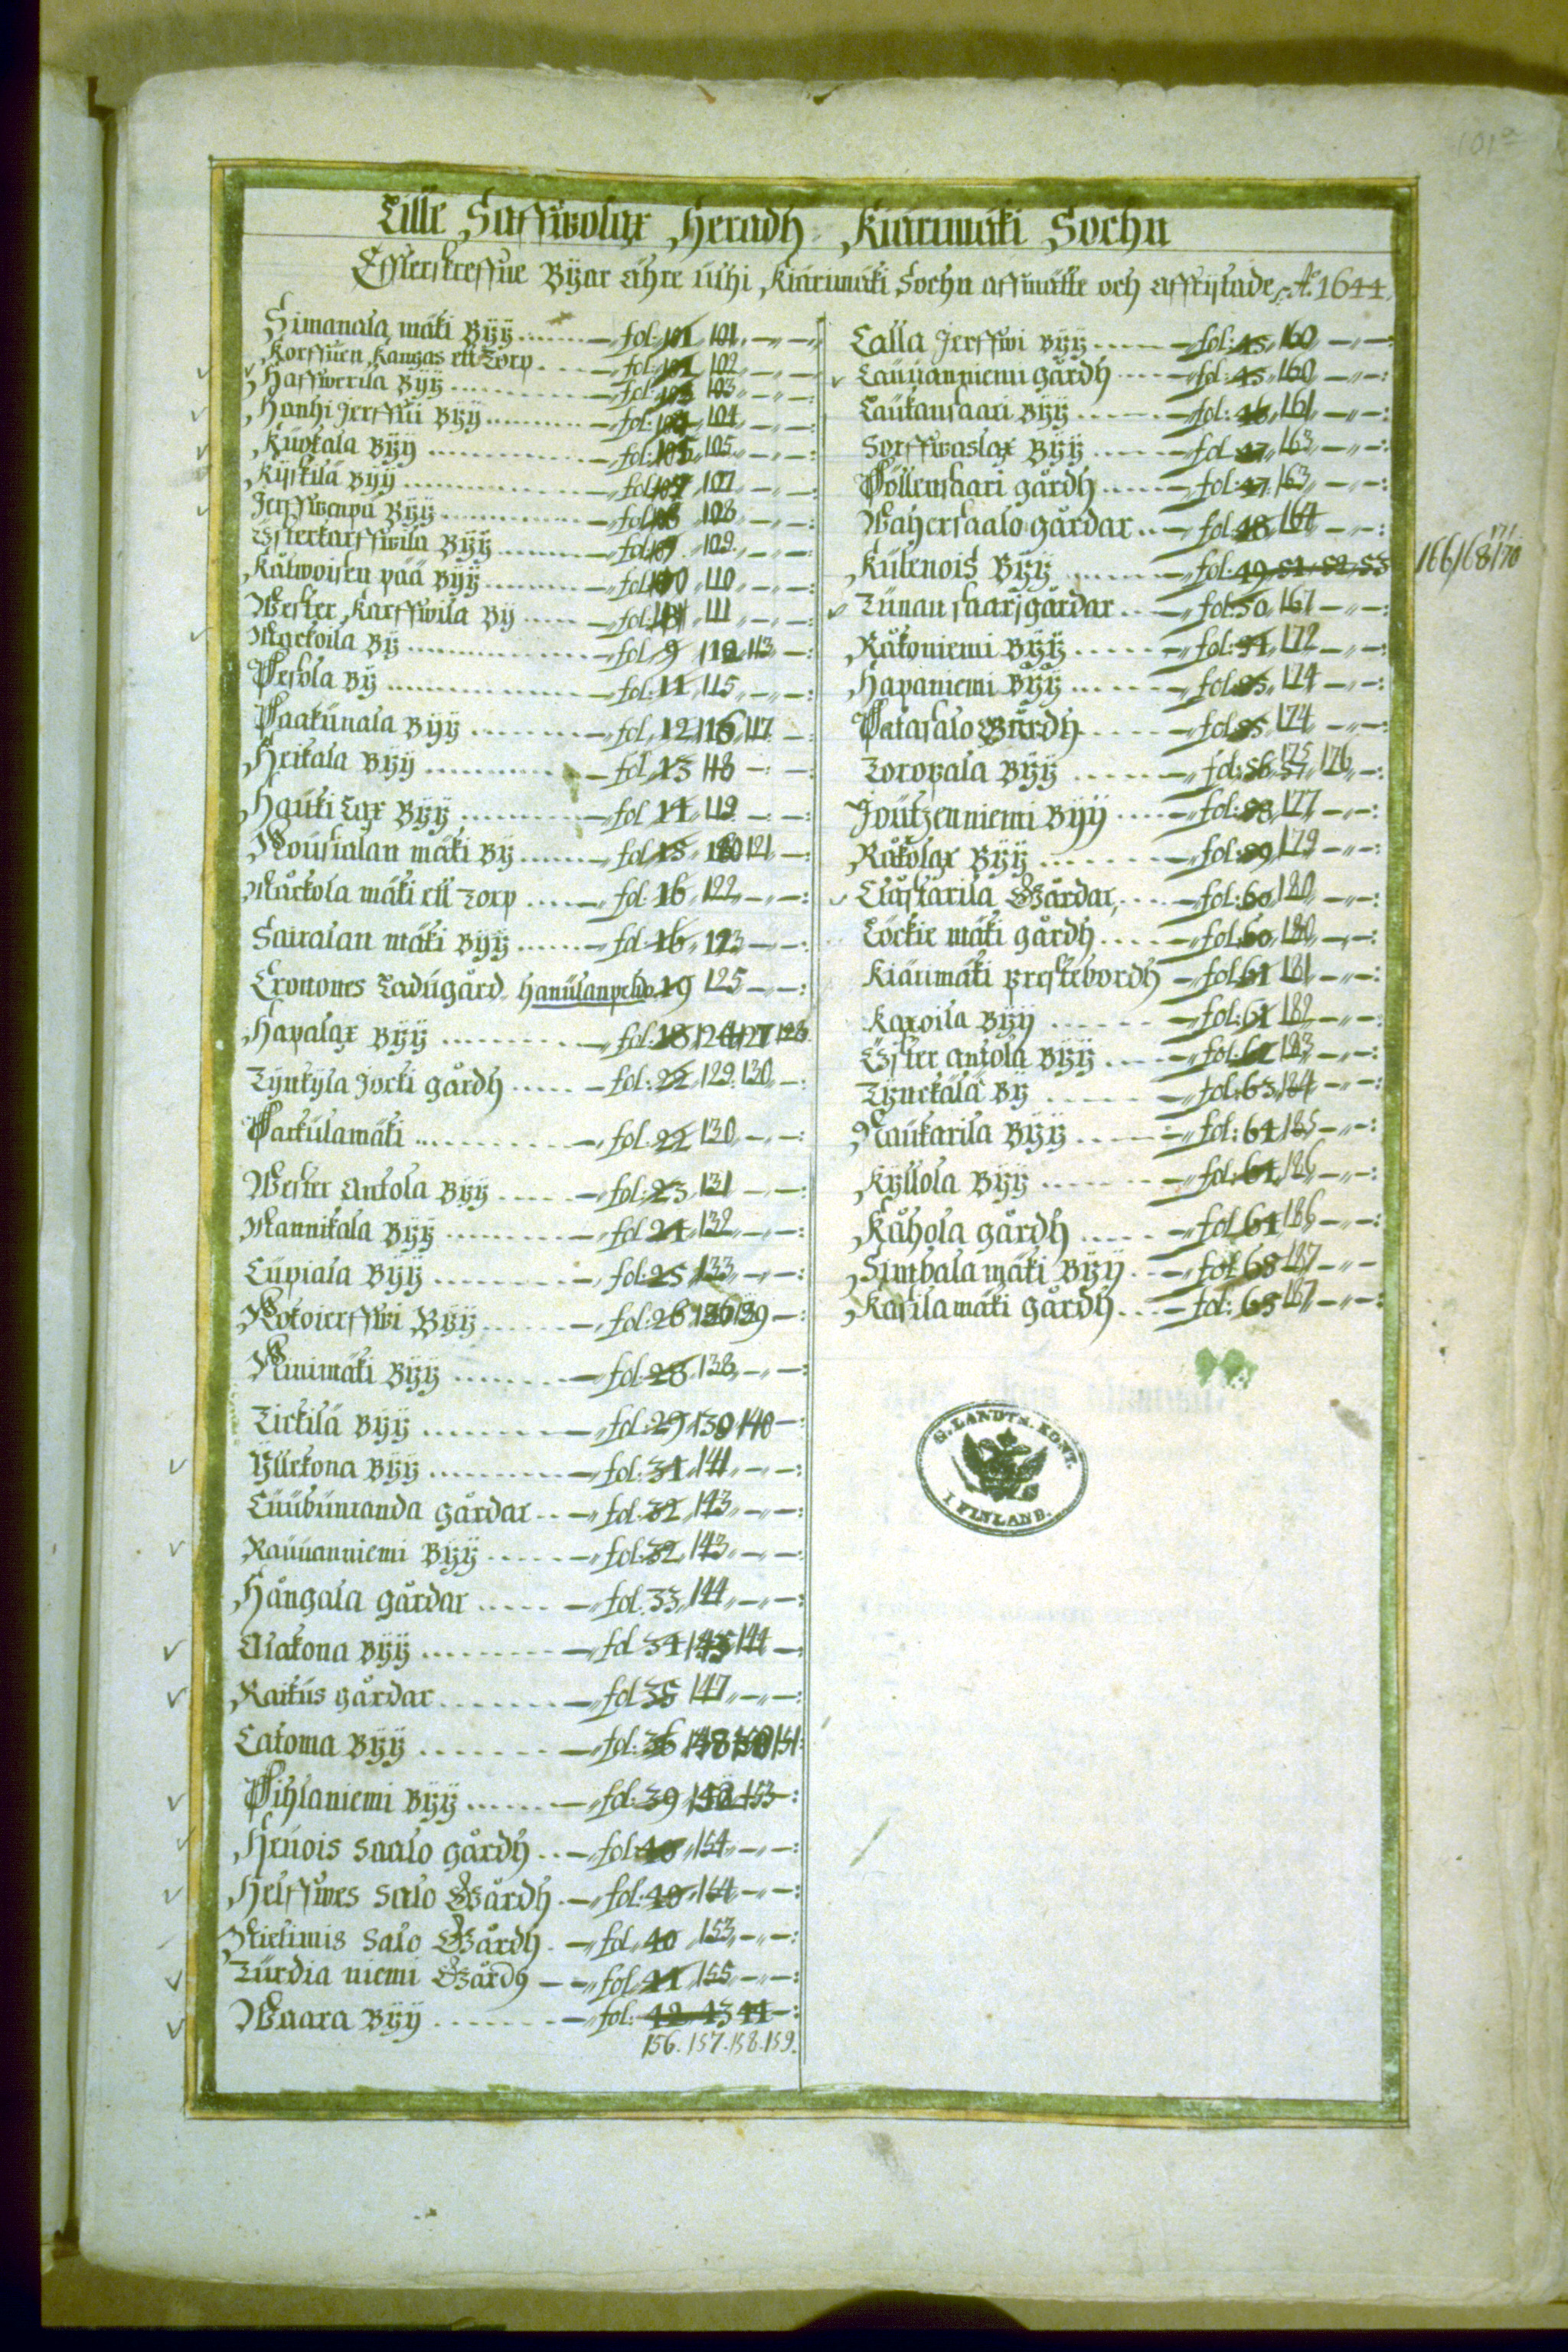 101a
Lille Saffwolax Heradh Kiärimäki Sochn
Effterskreffne Byar ähre uthi Kiärimäki Sochn affmätte och affritade A:o 1644
Simanala mäki Byÿ fol: 101
Korffuen Kangas ett Torp fol: 102
Haffwerila Byÿ fol: 103
Hanhi Jerffui Byÿ fol: 104
Kuokala Byÿ fol: 105
Kiiskilä Byÿ fol: 107
Jerffwenpä Byÿ fol: 108
Österkarffwila Byÿ fol: 109
Kälwoisen pää Byÿ fol: 110
Wester Karffwila By fol: 111
Mackoila By fol 9 112 113
Pesola By fol: 11 115
Paakunala Byÿ fol. 12 116 117
Heikala Byÿ fol. 13 118
Hauki Lax Byÿ fol 14 119
Rousialan mäki By fol 15 120 121
Mackola mäki ett Torp fol: 16 122
Sairalan mäki Byÿ fol 16 123
Cronones Ladugård Hanulanpeldo 19 125
Hapalax Byÿ fol: 18 126 127 128
Tynkyla Jocki gårdh fol: 22 129 130
Parkulamäki fol. 22 130
Wester Antola Byÿ fol: 23 131
Mannikala Byÿ fol 24 132
Lupiala Byÿ fol: 25 133
Rokojerffwi Byÿ fol: 26 136 139
Ruumäki Byÿ fol: 28 138
Tickilä Byÿ fol: 29 139 140
Yllekona Byÿ fol: 31 141
Luubunranda gårdar fol. 32 143
Rauuanniemi Byÿ fol: 32 143
Hångala gårdar fol. 33 144
Alakona Byÿ fol 34 145 144
Raikus gårdar fol 35 147
Latoma Byÿ fol: 36 148 150 151
Pihlaniemi Byÿ fol: 39 152 153
Heinois Saalo gårdh fol: 40 154
Helffwes Salo Gårdh fol: 40 154
Mielimis Salo Gårdh fol. 40 153
Turdia niemi Gårdh fol. 41 155
Waara Byÿ fol: 42 43 44
156. 157. 158. 159.
Lalla Jerffwi Byÿ fol: 45 160
Lauuanniemi gårdh fol: 45 160
Laukansaari Byÿ fol: 46 161
Sorffwaslax Byÿ fol 47 163
Pöllensaari gårdh fol: 47 163
Wahersaalo gårdar fol: 48 164
Kulenois Byÿ fol: 49 51 52 53 166 168 170 171
Tunan saari gårdar fol: 50 167
Räkoniemi Byÿ fol: 54 172
Hapaniemi Byÿ fol: 55 174
Patasalo Gårdh fol 55 174
Toropala Byÿ fol: 56 57 175 176
Joutzenniemi Byÿ fol: 58 177
Räkolax Byÿ fol: 59 179
Liastarila Gårdar fol: 60 180
Löckie mäki gårdh fol. 60 180
Kiärimäki Prestebordh fol 61 181
Karoila Byÿ fol: 61 182
Öster Antola Byÿ fol: 62 183
Tynckälä By fol: 63 184
Naukarila Byÿ fol: 64 185
Kyllola Byÿ fol: 64 186
Kåhola gårdh fol 64 186
Simbala mäki Byÿ fol 65 187
Kasila mäki gårdh fol: 65 187
G. LANDTM. KONT. I FINLAND.